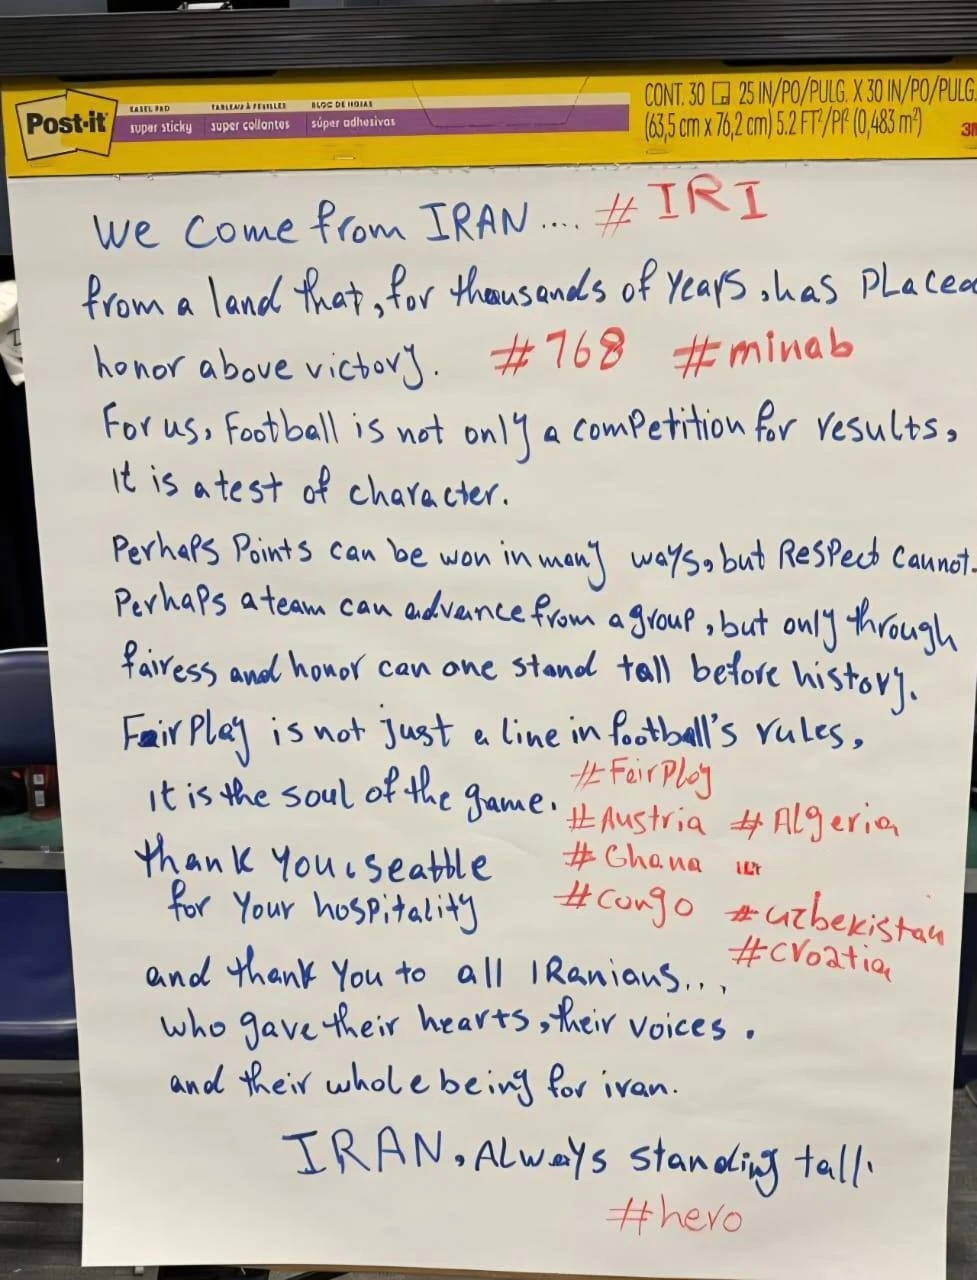 Post-it
EASEL PAD TABLEAU À FEUILLES BLOC DE HOJAS
super sticky super collantes súper adhesivas
CONT. 30 25 IN/PO/PULG. X 30 IN/PO/PULG.
(63,5 cm x 76,2 cm) 5.2 FT²/PI² (0,483 m²)
3M
We come from IRAN .... # IRI
from a land that, for thousands of years, has Placed
honor above victory. #768 #minab
For us, Football is not only a competition for results,
it is a test of character.
Perhaps Points can be won in many ways, but Respect cannot.
Perhaps a team can advance from a group, but only through
fairess and honor can one stand tall before history.
Fair Play is not just a line in football's rules,
it is the soul of the game. #FairPlay
#Austria #Algeria
thank you, seattle #Ghana
for your hospitality #congo #uzbekistan
#croatia
and thank you to all IRanians...,
who gave their hearts, their voices.
and their whole being for iran.
IRAN, Always standing tall.
#hero